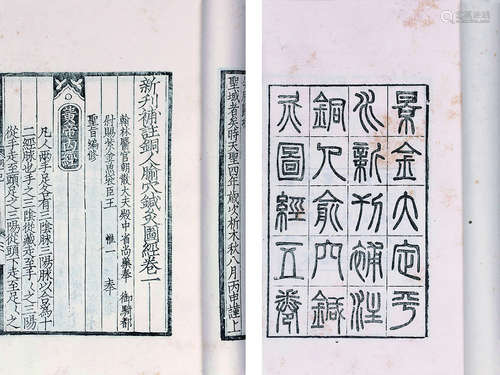 景金大定平
水新刊補注
銅人俞穴鍼
灸圖經五卷
聖域者矣時天聖四年歲次析木秋八月丙申謹上
新刊補註銅人腧穴鍼灸圖經卷一
翰林醫官朝散大夫殿中省尚藥奉御騎都
尉賜紫金魚袋臣王惟一奉
聖旨編修
黃帝內經
凡人兩手足各有三陰脉三陽脉以合為十
二經脉也手之三陰從藏走至手〻之三陽
從手走至頭足之三陽從頭下走至足〻之